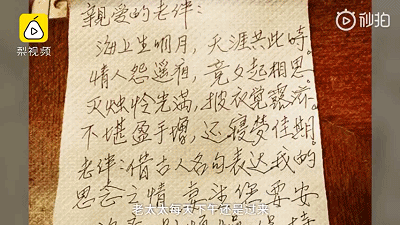 梨视频
秒拍
親爱的老伴：
海上生明月，天涯共此時。
情人怨遥夜，竟夕起相思。
灭烛怜光满，披衣覚露滋。
不堪盈手增，还寝梦佳期。
老伴：借古人名句表达我的
思念之情 要安
老太太每天下午还是过来